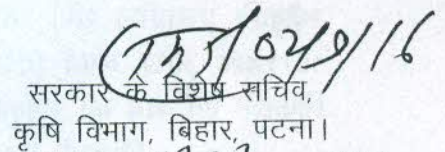 02/9/16
सरकार के विशेष सचिव,
कृषि विभाग, बिहार, पटना।